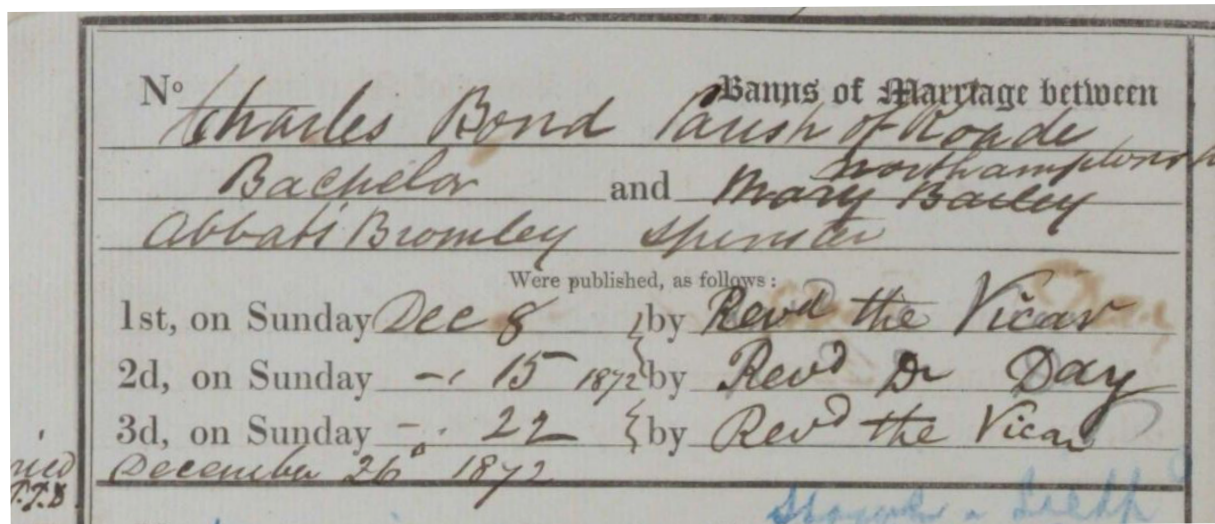 No Banns of Marriage between
Charles Bond Parish of Roade
Northamptonsh
Bachelor and Mary Bailey
Abbots Bromley Spinster
Were published, as follows:
1st, on Sunday Dec 8 by Revd the Vicar
2d, on Sunday -. 15 1872 by Revd Dr Day
3d, on Sunday -. 22 by Revd the Vicar
December 26 1872